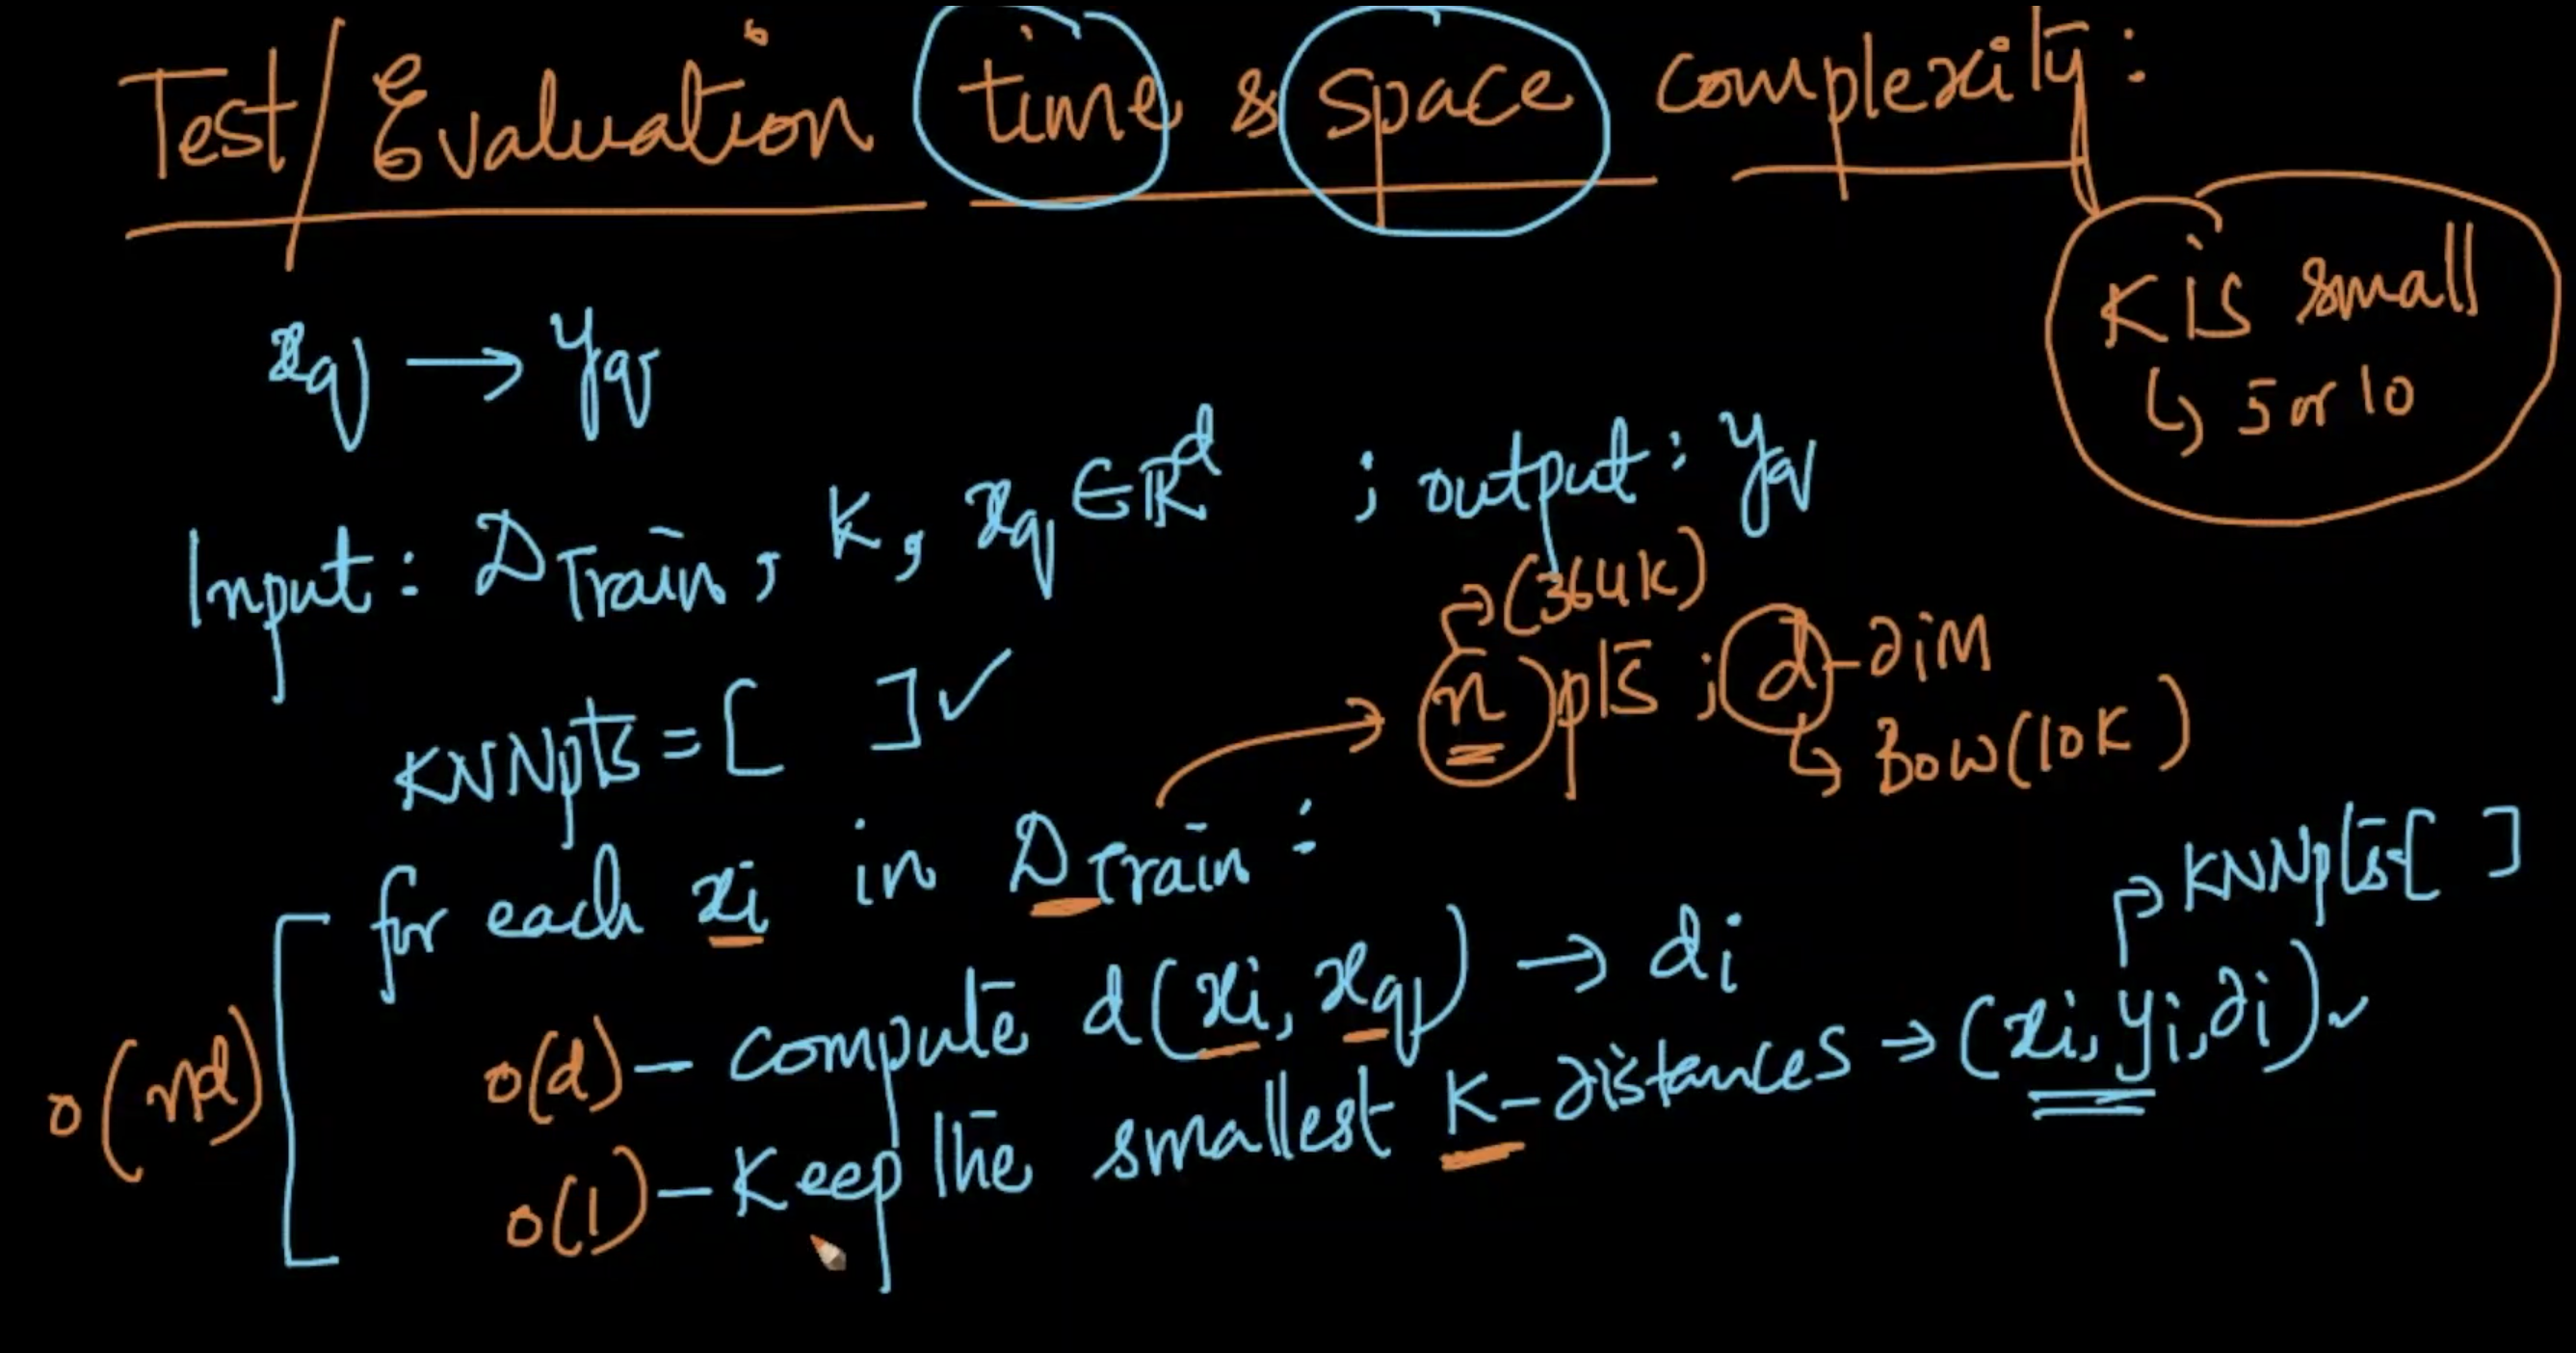 Test/Evaluation time & space complexity:
K is small
↳ 5 or 10
xq → yq
Input: DTrain, K, xq ∈ ℝᵈ ; output: yq
(364K)
n pts ; d-dim
↳ BOW(10K)
KNNpts = [ ] ✓
for each xi in DTrain:
KNNpts=[ ]
O(nd)
O(d) – compute d(xi, xq) → di
O(1) – Keep the smallest K-distances → (xi, yi, di) ✓